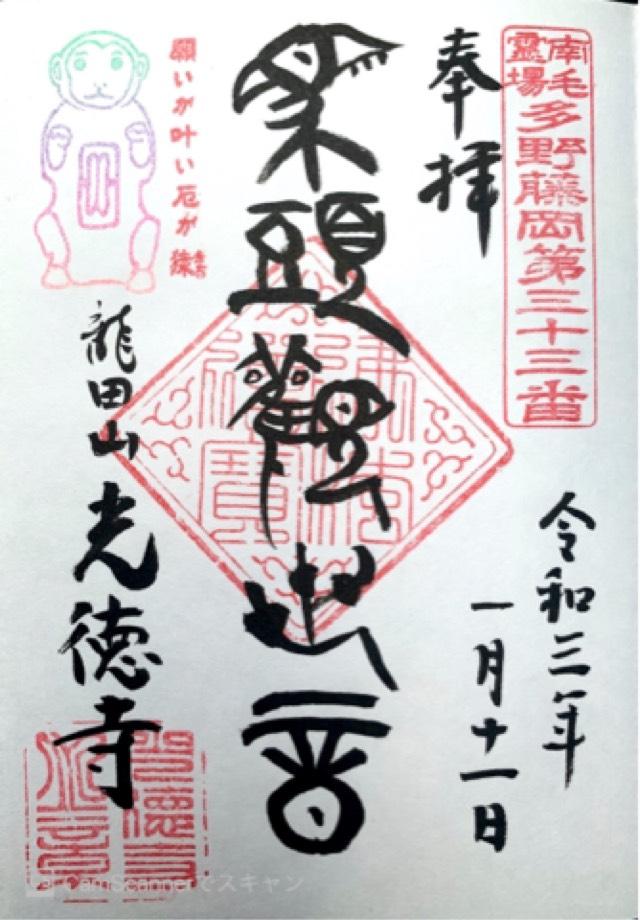 南毛
靈場
多野藤岡第三十三番
奉拝
令和三年
一月十一日
頭觀世音
佛法僧寶
願いが叶い厄が猿
龍田山光徳寺
CamScannerでスキャン